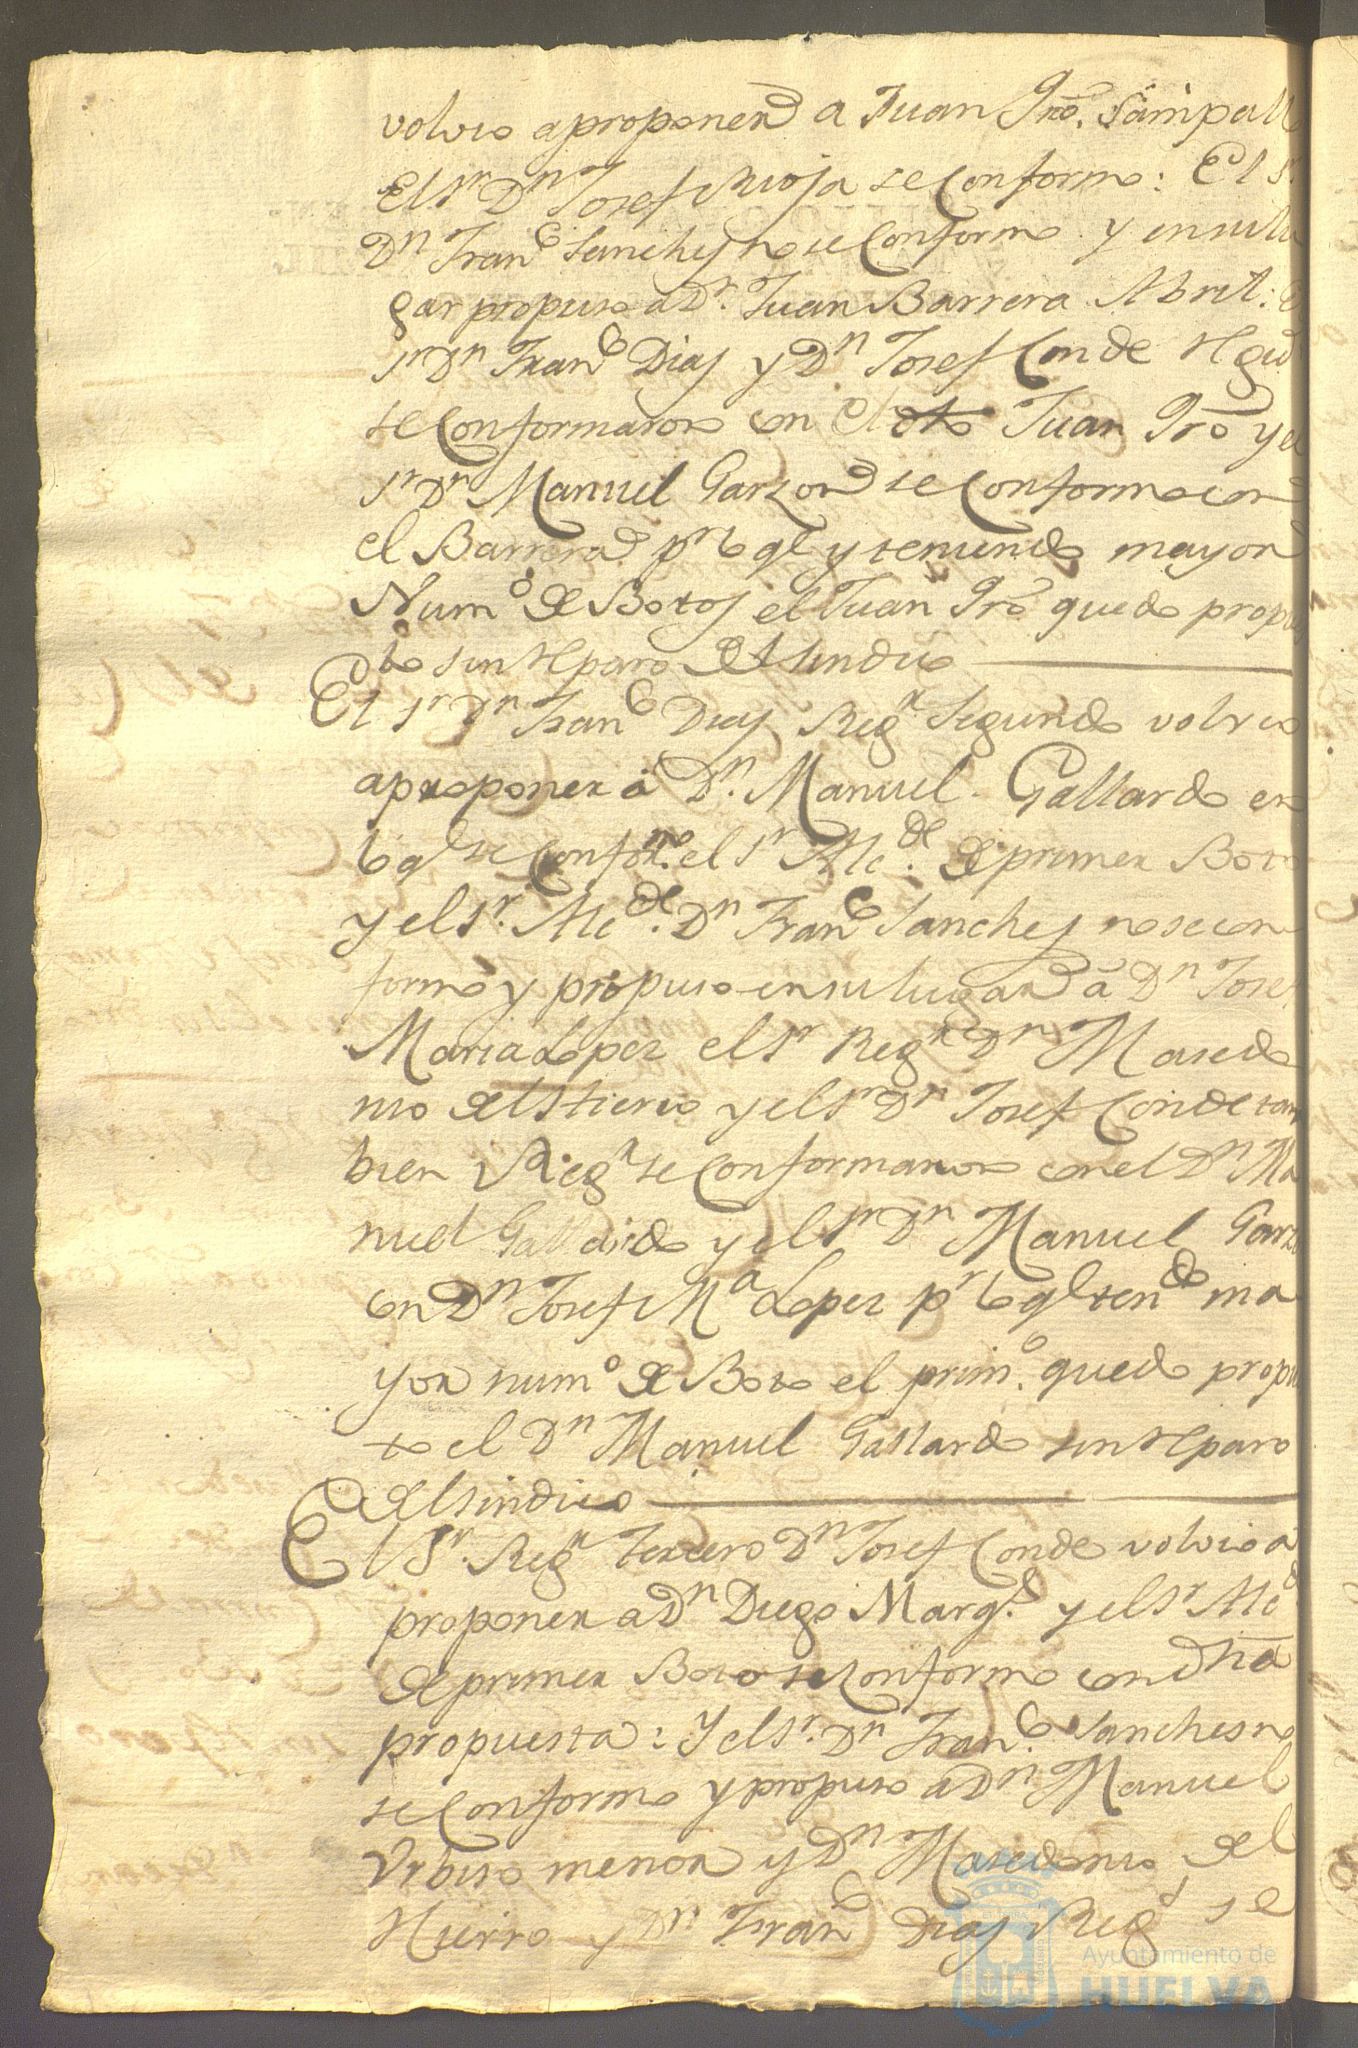 volvio aproponer a Juan Gro. Sampall
El Sr Dn Josef Rioja se Conformo: El Sr.
Dn Franco Sanches no se Conformo y en su lu
gar propuso a Dn. Juan Barrera Abril: El
Sr Dn Franco Dias y Dn Josef Conde Regid
se Conformaron con el dho Juan Gro y el
Sr Dn Manuel Garzon se Conformo con
el Barrera pr lo ql y teniendo mayor
Numo de Botos el Juan Gro quedo propu
to sin Reparo del Sindico
El Sr Dn Franco Dias Regr Segundo volvio
aproponer a Dn. Manuel Gallardo en
lo ql se Conformo el Sr Alcde de primer Boto
y el Sr. Alcde. Dn Franco Sanches no se con
formo y propuso en su lugar a Dn Josef
Maria Lopez el Sr Regr Dn Masedo
nio del Hierro y el Sr Dn Josef Conde tam
bien Regr se Conformaron con el Dn Ma
nuel Gallardo y el Sr Dn Manuel Garzo
en Dn Josef Ma Lopez pr lo ql tendo ma
yor numo de Boto el primo. quedo propu
to el Dn Manuel Gallardo sin Reparo
del sindico
El Sr. Regr tercero Dn Josef Conde volvio a
proponer a Dn Diego Marqd. y el Sr Alcd
de primer Boto se Conformo con dha
propuesta: Y el Sr. Dn Franco. Sanches no
se Conformo y propuso a Dn Manuel
Urbiso menor y Dn Masedonio del
Hierro y Dn Franco Dias Regd se
Ayuntamiento de
HUELVA